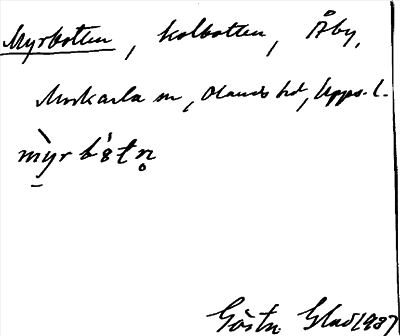 Myrbotten, kolbotten, Åby,
Morkarla sn, Olands hd, Upps. l.
Gösta Glad 1937